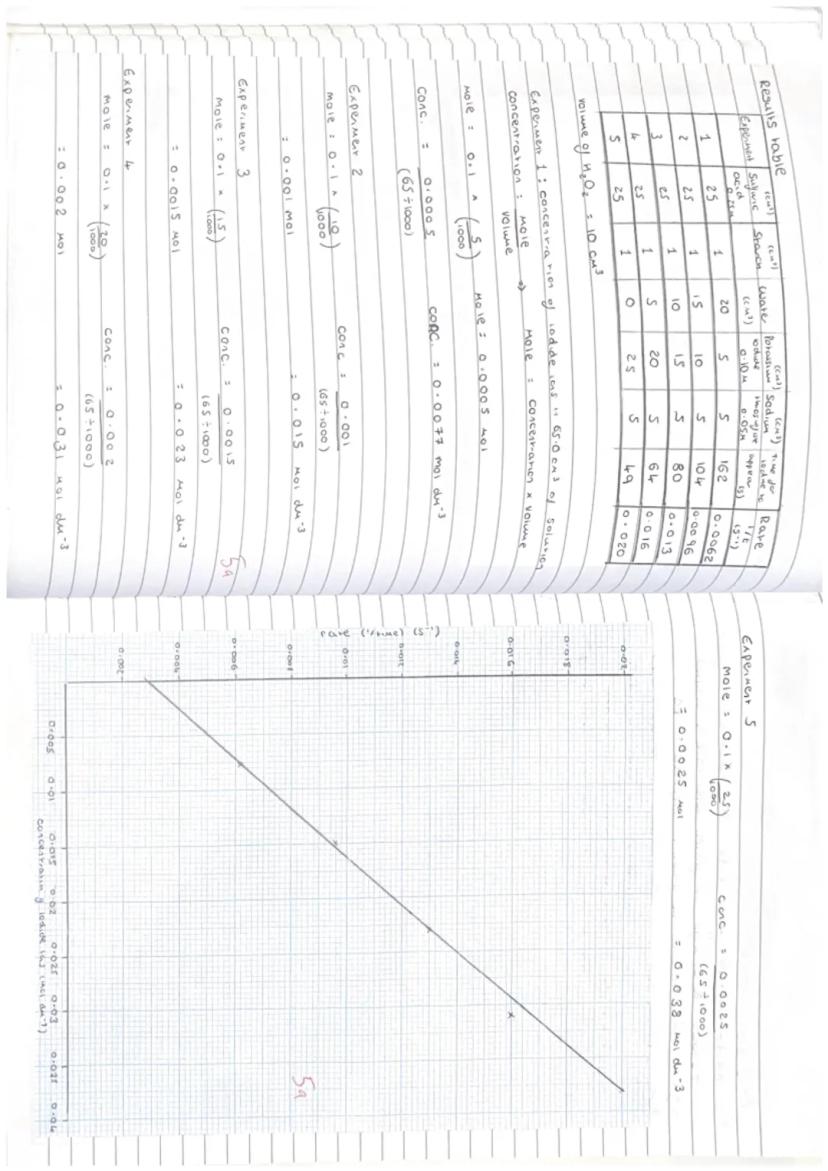 Results table
Experiment | (cm³) Sulfuric acid 0.25M | (cm³) Starch | Water (cm³) | (cm³) Potassium iodide 0.10M | (cm³) Sodium thiosulfate 0.05M | Time for iodine to appear (s) | Rate 1/t (s⁻¹)
1 | 25 | 1 | 20 | 5 | 5 | 162 | 0.0062
2 | 25 | 1 | 15 | 10 | 5 | 104 | 0.0096
3 | 25 | 1 | 10 | 15 | 5 | 80 | 0.013
4 | 25 | 1 | 5 | 20 | 5 | 64 | 0.016
5 | 25 | 1 | 0 | 25 | 5 | 49 | 0.020
volume of H₂O₂ = 10 cm³
Experiment 1: concentration of iodide ions in 65.0cm³ of solution
concentration = mole / volume ⇒ Mole = concentration × volume
Mole = 0.1 × (5/1000) Mole = 0.0005 mol
conc. = 0.0005 / (65÷1000) conc. = 0.0077 mol dm⁻³
Experiment 2
Mole = 0.1 × (10/1000) conc = 0.001 / (65÷1000)
= 0.001 mol = 0.015 mol dm⁻³
Experiment 3
Mole = 0.1 × (15/1000) conc. = 0.0015 / (65÷1000)
= 0.0015 mol = 0.023 mol dm⁻³
5a
Experiment 4
Mole = 0.1 × (20/1000) conc. = 0.002 / (65÷1000)
= 0.002 mol = 0.031 mol dm⁻³
Experiment 5
Mole = 0.1 × (25/1000) conc = 0.0025 / (65÷1000)
= 0.0025 mol = 0.038 mol dm⁻³
rate (1/time) (s⁻¹)
0.02
0.018
0.016
0.014
0.012
0.01
0.008
0.006
0.004
0.002
5a
0.005 0.01 0.015 0.02 0.025 0.03 0.035 0.04
concentration of iodide ions (mol dm⁻³)